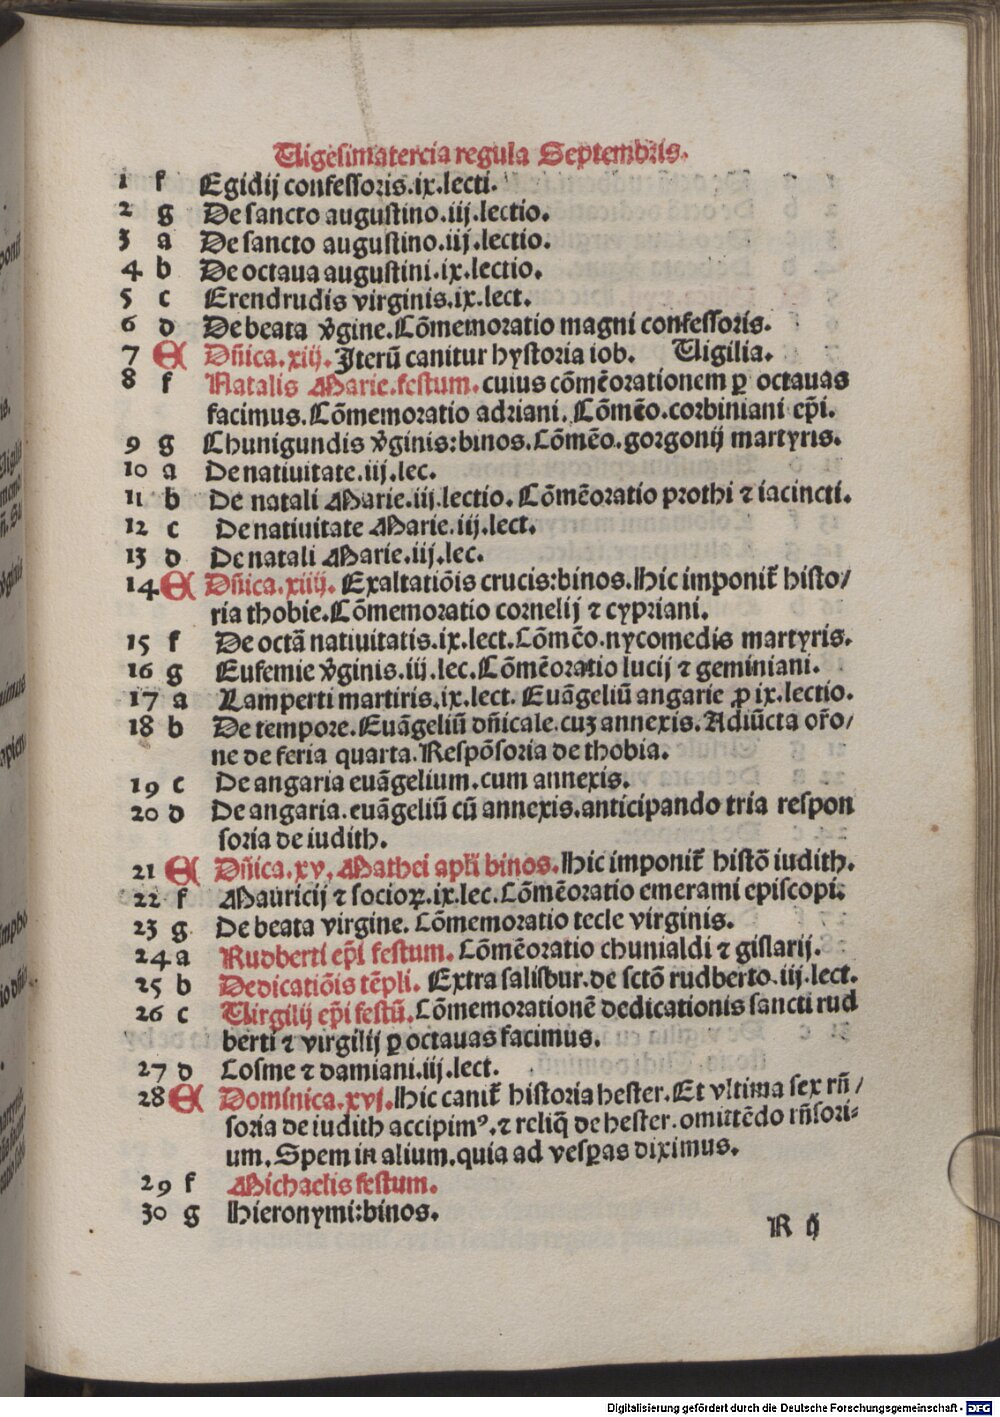 Uigesimatercia regula Septembris.
1 f Egidij confessoris.ix.lecti.
2 g De sancto augustino.iij.lectio.
3 a De sancto augustino.iij.lectio.
4 b De octaua augustini.ix.lectio.
5 c Erendrudis virginis.ix.lect.
6 d De beata v̄gine.Cōmemoratio magni confessoris.
7 E Dñica.xiij.Iterū canitur hystoria iob. Uigilia.
8 f Natalis Marie.festum.cuius cōmēorationem ꝑ octauas
facimus.Cōmemoratio adriani.Cōmēo.corbiniani ep̄i.
9 g Chunigundis v̄ginis:binos.Cōmēo.gorgonij martyris.
10 a De natiuitate.iij.lec.
11 b De natali Marie.iij.lectio.Cōmēoratio prothi ⁊ iacincti.
12 c De natiuitate Marie.iij.lect.
13 d De natali Marie.iij.lec.
14 E Dñica.xiiij.Exaltatiōis crucis:binos.Hic imponit̄ histo/
ria thobie.Cōmemoratio cornelij ⁊ cypriani.
15 f De octā natiuitatis.ix.lect.Cōmēo.nycomedis martyris.
16 g Eufemie v̄ginis.iij.lec.Cōmēoratio lucij ⁊ geminiani.
17 a Lamperti martiris.ix.lect.Euāgeliū angarie ꝓ ix.lectio.
18 b De tempore.Euāgeliū dñicale.cuz annexis.Adiūcta or̄o/
ne de feria quarta.Respōsoria de thobia.
19 c De angaria euāgelium.cum annexis.
20 d De angaria.euāgeliū cū annexis.anticipando tria respon
soria de iudith.
21 E Dñica.xv.Mathei apl̄i binos.Hic imponit̄ histō iudith.
22 f Mauricij ⁊ socioꝝ.ix.lec.Cōmēoratio emerami episcopi.
23 g De beata virgine.Cōmemoratio tecle virginis.
24 a Rudberti ep̄i festum.Cōmēoratio chunialdi ⁊ gislarij.
25 b Dedicatiōis tēpli.Extra salisbur.de sctō rudberto.iij.lect.
26 c Uirgilij ep̄i festū.Cōmemorationē dedicationis sancti rud
berti ⁊ virgilij ꝑ octauas facimus.
27 d Cosme ⁊ damiani.iij.lect.
28 E Dominica.xvj.Hic canit̄ historia hester.Et vltima sex rñ/
soria de iudith accipimꝰ.⁊ reliq̄ de hester.omittēdo rñsori-
um.Spem in alium.quia ad vesꝑas diximus.
29 f Michaelis festum.
30 g Hieronymi:binos.
R ij
Digitalisierung gefördert durch die Deutsche Forschungsgemeinschaft - DFG